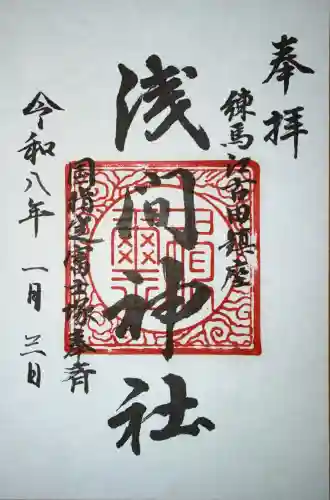 奉拝
練馬江古田鎮座
浅間神社
国指定富士塚奉斉
令和八年 一月 三日